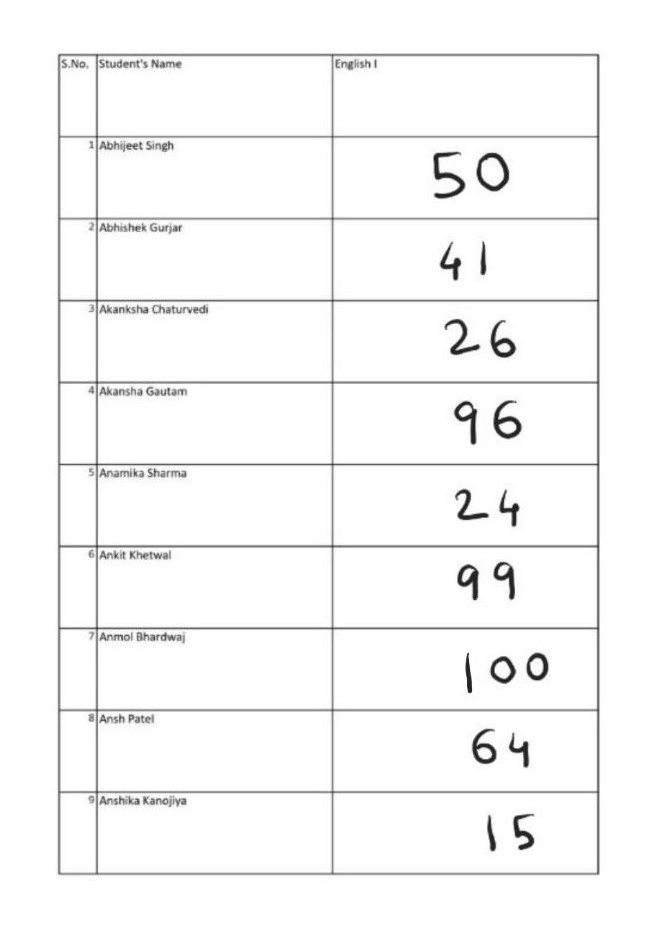 S.No. Student's Name English I
1 Abhijeet Singh 50
2 Abhishek Gurjar 41
3 Akanksha Chaturvedi 26
4 Akansha Gautam 96
5 Anamika Sharma 24
6 Ankit Khetwal 99
7 Anmol Bhardwaj 100
8 Ansh Patel 64
9 Anshika Kanojiya 15